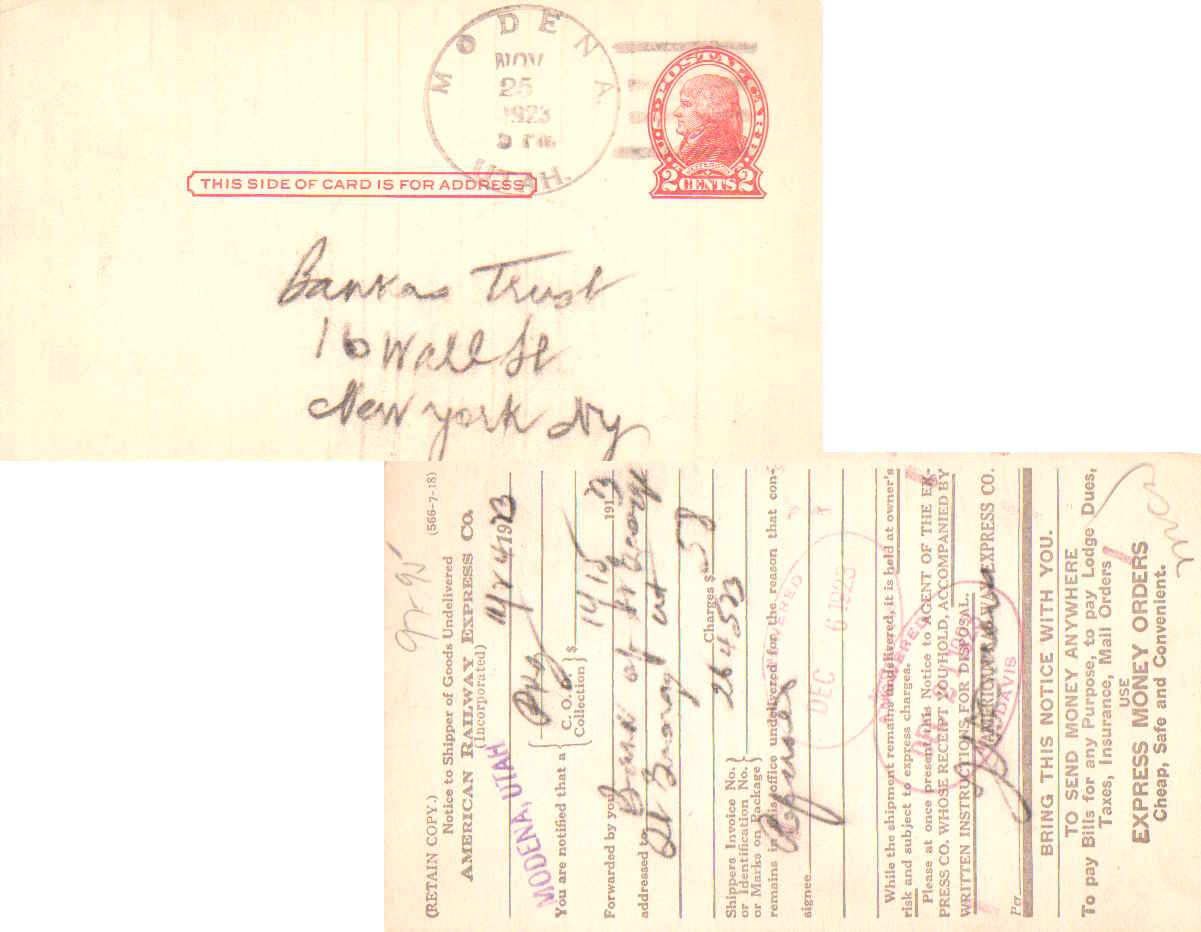 MODENA.
NOV
25
1923
UTAH.
U.S. POSTAL CARD
2 CENTS 2
THIS SIDE OF CARD IS FOR ADDRESS
Bankers Trust
16 Wall St
New York Ny
(RETAIN COPY.) (566-7-18)
Notice to Shipper of Goods Undelivered
AMERICAN RAILWAY EXPRESS CO.
(Incorporated)
MODENA, UTAH
1923
You are notified that a { Pkg C. O. D. Collection } $
Forwarded by you 14/15 191
addressed to Bank of St George
at
Charges $ 58
Shippers Invoice No.
or Identification No. } 264523
or Marks on Package
remains in this office undelivered for the reason that con-
signee Refuses
DEC 6 1923
While the shipment remains undelivered, it is held at owner's
risk and subject to express charges.
Please at once present this Notice to AGENT OF THE EX-
PRESS CO. WHOSE RECEIPT YOU HOLD, ACCOMPANIED BY
WRITTEN INSTRUCTIONS FOR DISPOSAL.
ANSWERED
DAVIS
AMERICAN RAILWAY EXPRESS CO.
Per
BRING THIS NOTICE WITH YOU.
TO SEND MONEY ANYWHERE
To pay Bills for any Purpose, to pay Lodge Dues,
Taxes, Insurance, Mail Orders
USE
EXPRESS MONEY ORDERS
Cheap, Safe and Convenient.